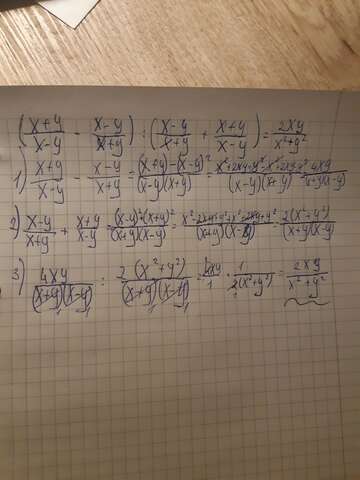 (x+y/x-y - x-y/x+y) : (x-y/x+y + x+y/x-y) = 2xy/x²+y²
1) x+y/x-y - x-y/x+y = (x+y)-(x-y)²/(x-y)(x+y) = x²+2xy+y²-x²+2xy-y²/(x-y)(x+y) = 4xy/(x+y)(x-y)
2) x-y/x+y + x+y/x-y = (x-y)²+(x+y)²/(x+y)(x-y) = x²-2xy+y²+x²+2xy+y²/(x+y)(x-y) = 2(x²+y²)/(x+y)(x-y)
3) 4xy/(x+y)(x-y) : 2(x²+y²)/(x+y)(x-y) = 4xy/1 · 1/2(x²+y²) = 2xy/x²+y²